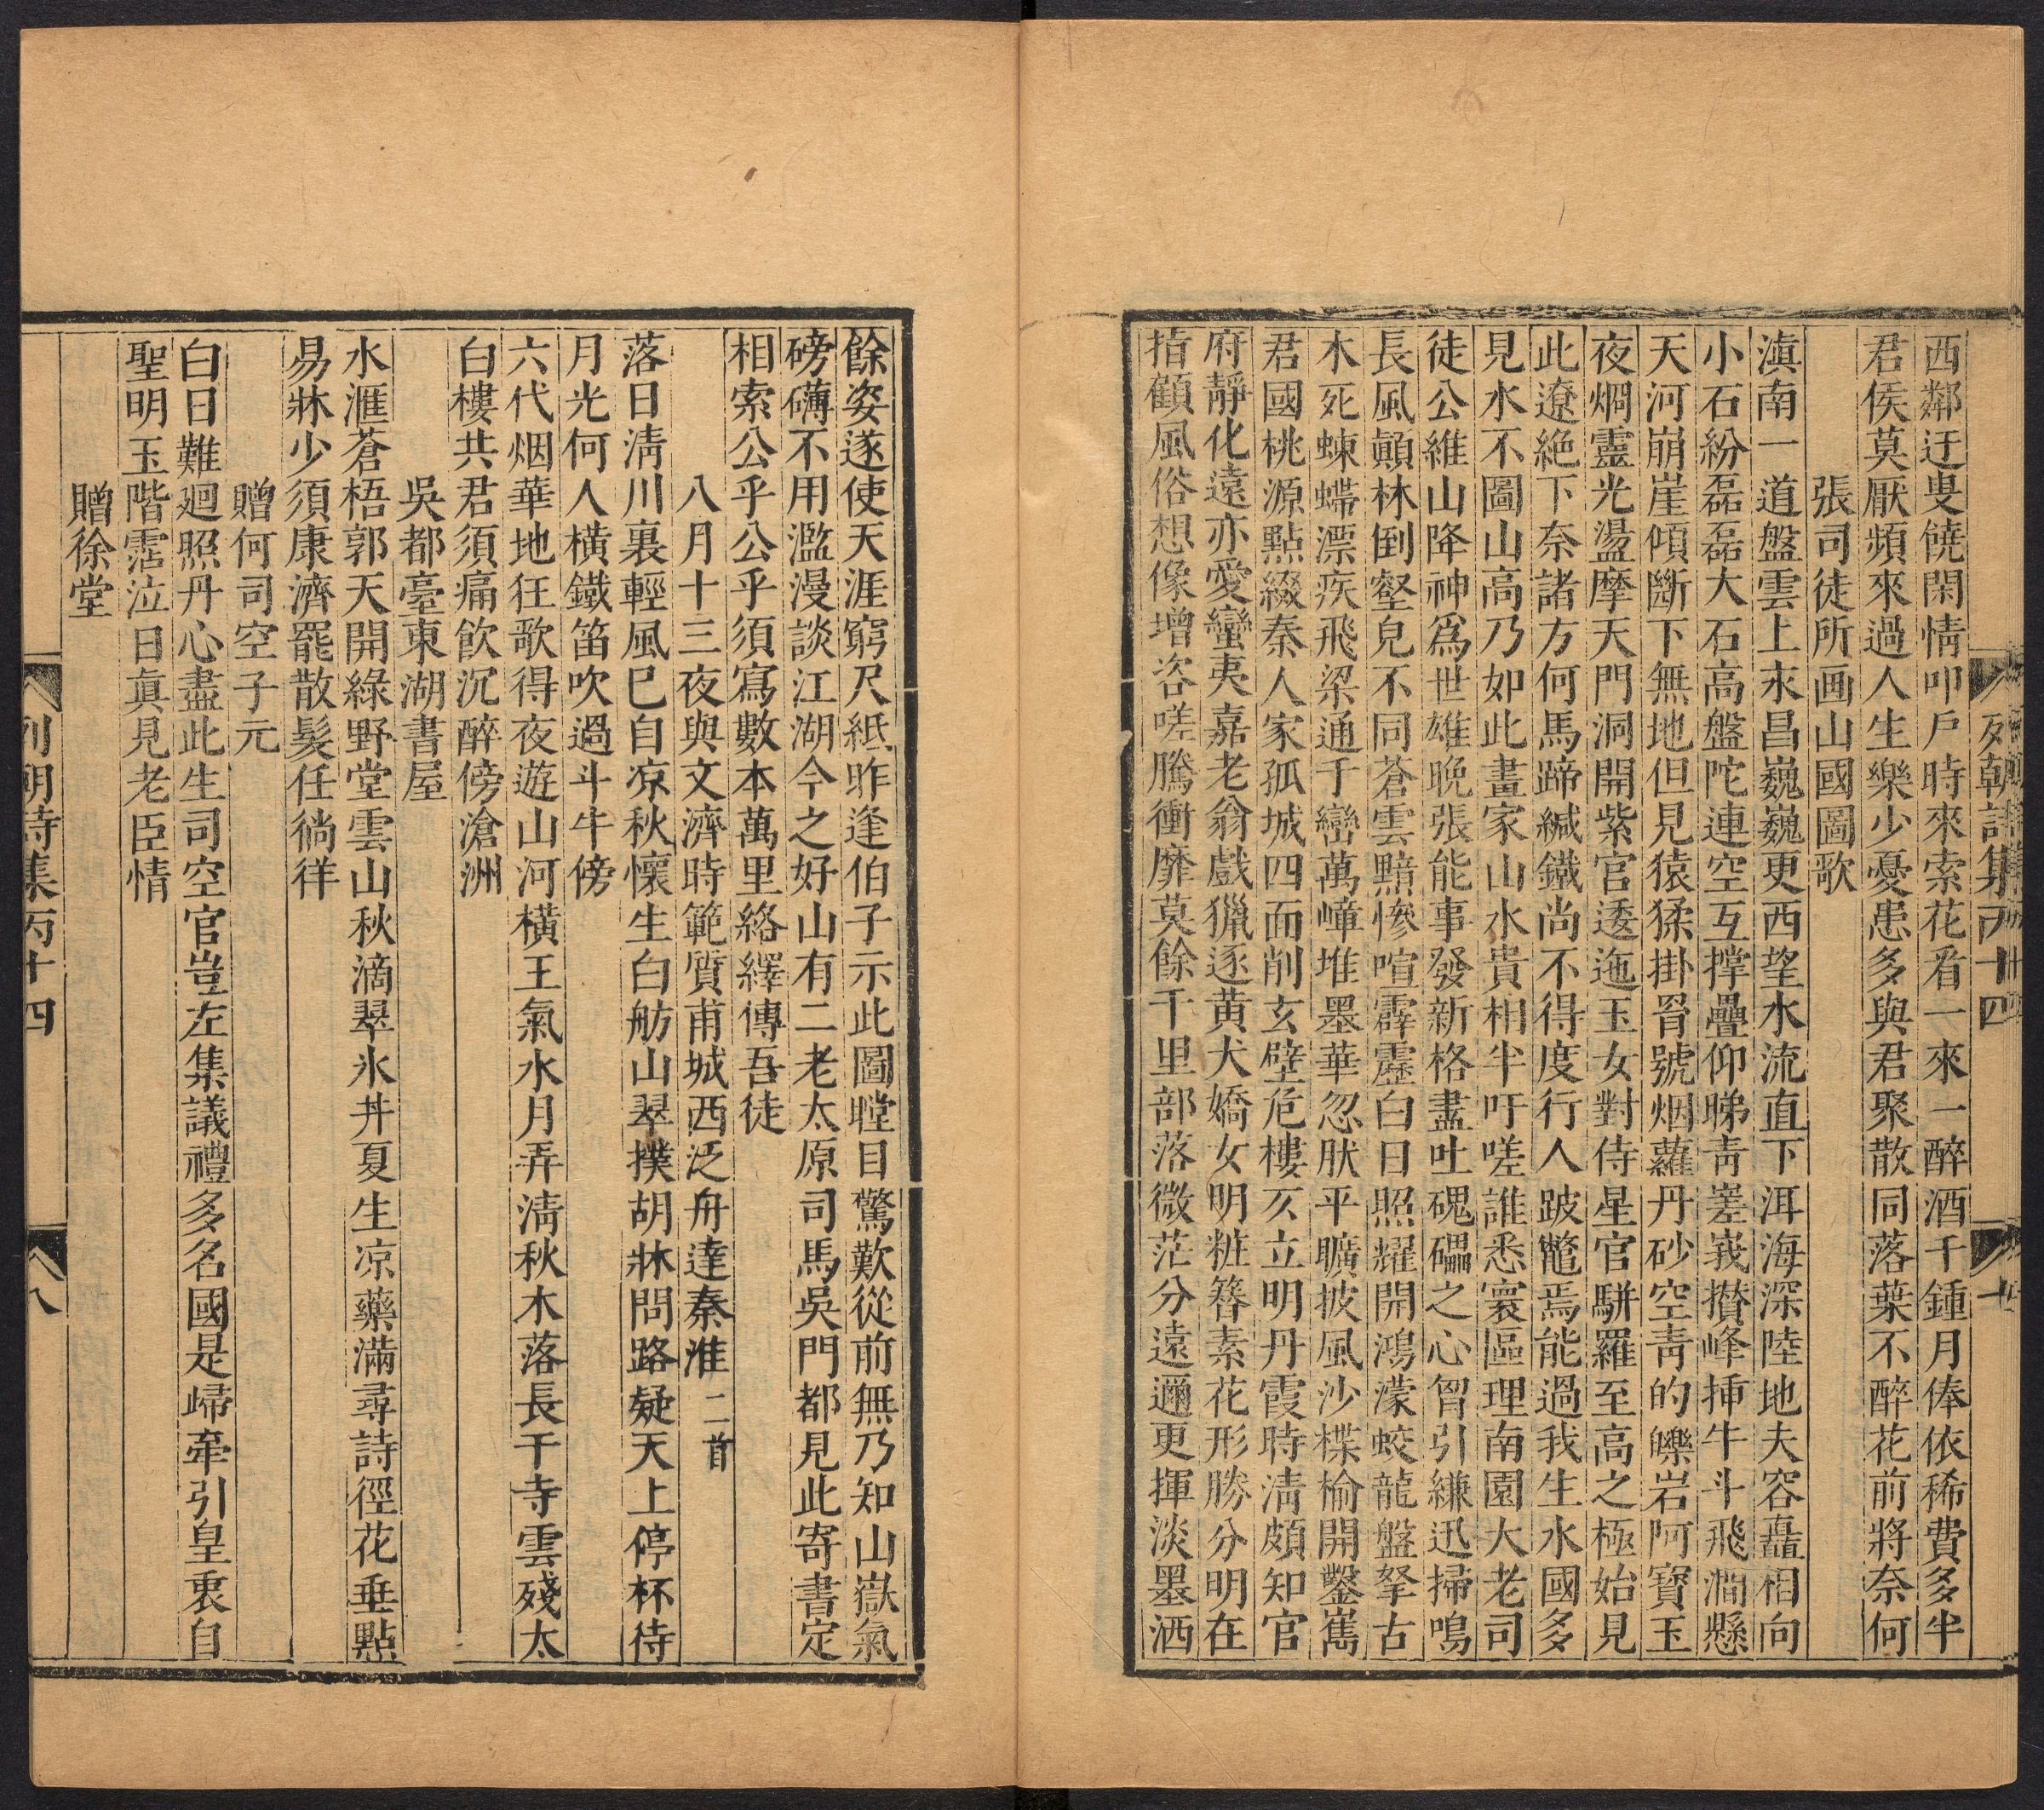 西鄰迂叟饒閑情叩戶時來索花看一來一醉酒千鍾月俸依稀費多半
君侯莫厭頻來過人生樂少憂患多與君聚散同落葉不醉花前將奈何
張司徒所画山國圖歌
滇南一道盤雲上永昌巍巍更西望水流直下洱海深陸地夫容矗相向
小石紛磊磊大石高盤陀連空互撑疊仰睇青嵳峩攅峰揷牛斗飛澗懸
天河崩崖傾斷下無地但見猿猱掛胷號烟蘿丹砂空青的皪岩阿寶玉
夜烱靈光盪摩天門洞開紫官逶迤玉女對侍星官駢羅至高之極始見
此遼絶下奈諸方何馬蹄緘鐵尚不得度行人跛鼈焉能過我生水國多
見水不圖山高乃如此畫家山水貴相半吁嗟誰悉寰區理南園大老司
徒公維山降神爲世雄晚張能事發新格盡吐磈礧之心胷引縑迅掃鳴
長風顚林倒壑皃不同蒼雲黯慘喧霹靂白日照耀開鴻濛蛟龍盤拏古
木死蝀蝃漂疾飛梁通千巒萬嶂堆墨華忽肰平曠披風沙楪榆開鑿嶲
君國桃源點綴秦人家孤城四面削玄壁危樓亥立明丹霞時淸頗知官
府靜化遠亦愛蠻夷嘉老翁戲獵逐黄犬嬌女明粧簪素花形勝分明在
指顧風俗想像增咨嗟騰衝靡莫餘千里部落微茫分遠邇更揮淡墨洒
列朝詩集丙十四
餘姿遂使天涯窮尺紙昨逢伯子示此圖瞠目驚歎從前無乃知山嶽氣
磅礴不用濫漫談江湖今之好山有二老太原司馬吳門都見此寄書定
相索公乎公乎須寫數本萬里絡繹傳吾徒
八月十三夜與文濟時範質甫城西泛舟達秦淮二首
落日淸川裏輕風巳自凉秋懷生白舫山翠撲胡牀問路疑天上停杯待
月光何人橫鐵笛吹過斗牛傍
六代烟華地狂歌得夜遊山河橫王氣水月弄淸秋木落長干寺雲殘太
白樓共君須痛飲沉醉傍滄洲
吳都臺東湖書屋
水滙蒼梧郭天開綠野堂雲山秋滴翠氷井夏生凉藥滿尋詩徑花垂點
易牀少須康濟罷散髮任徜徉
贈何司空子元
白日難廻照丹心盡此生司空官豈左集議禮多名國是歸牽引皇衷自
聖明玉階霑泣日眞見老臣情
贈徐堂
列朝詩集丙十四
八